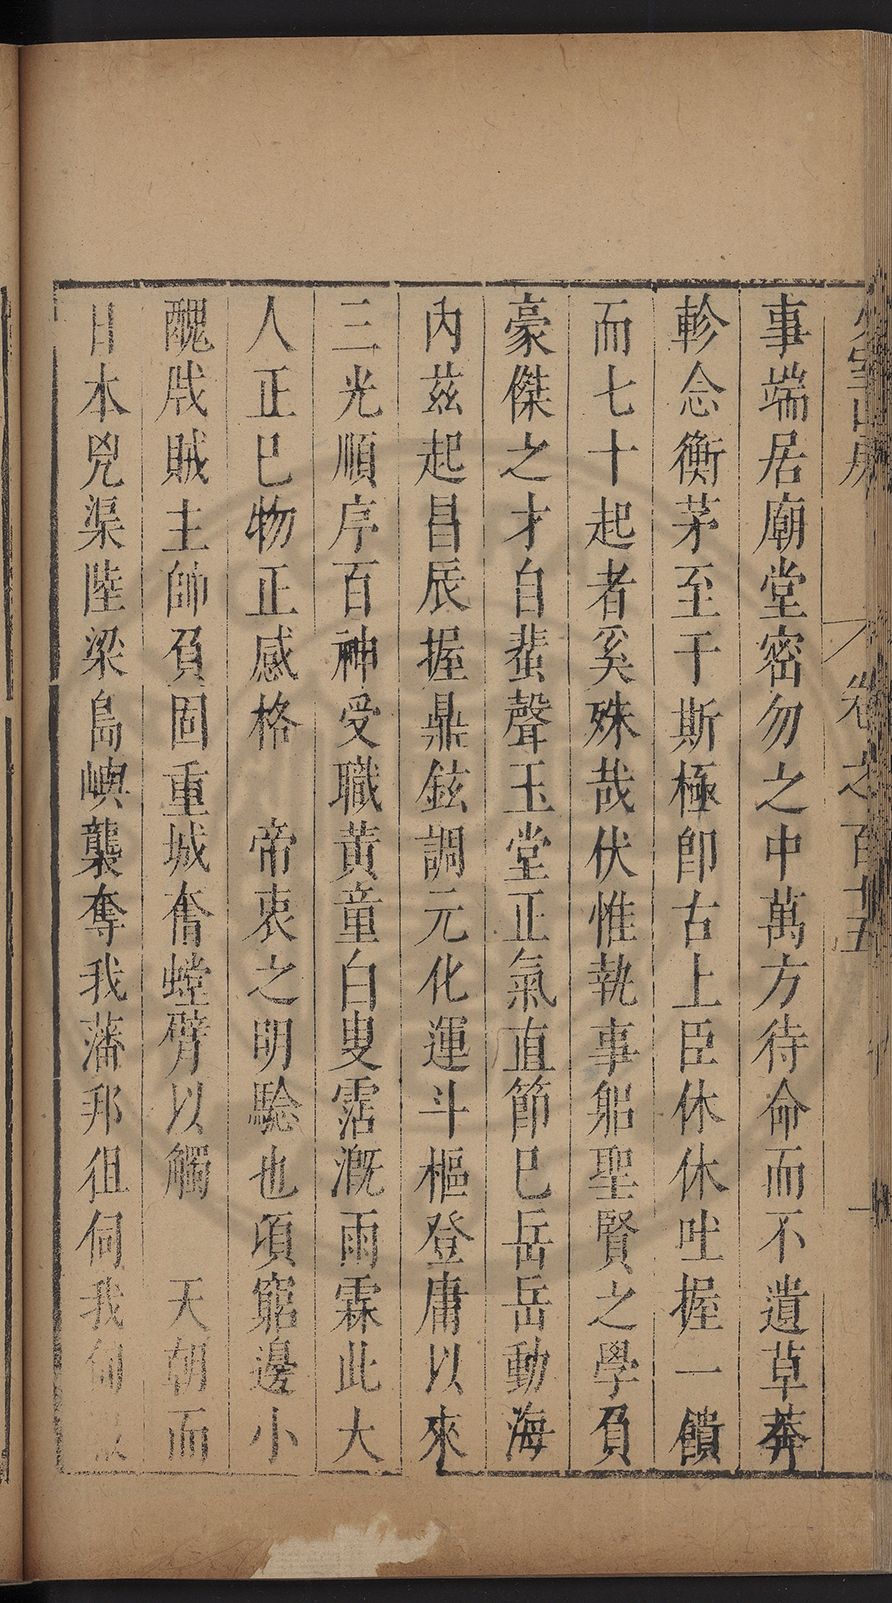 少室山房
卷之百十五
一
事端居廟堂密勿之中萬方待命而不遺草莽
軫念衡茅至于斯極卽古上臣休休吐握一饋
而七十起者奚殊哉伏惟執事躳聖賢之學負
豪傑之才自蜚聲玉堂正氣直節巳岳岳動海
內茲起昌辰握鼎鉉調元化運斗樞登庸以來
三光順序百神受職黃童白叟霑溉雨霖此大
人正巳物正感格　帝衷之明驗也頃窮邊小
醜戕賊主帥負固重城奮螳臂以觸　天朝而
日本兇渠陸梁島嶼襲奪我藩邦狙伺我